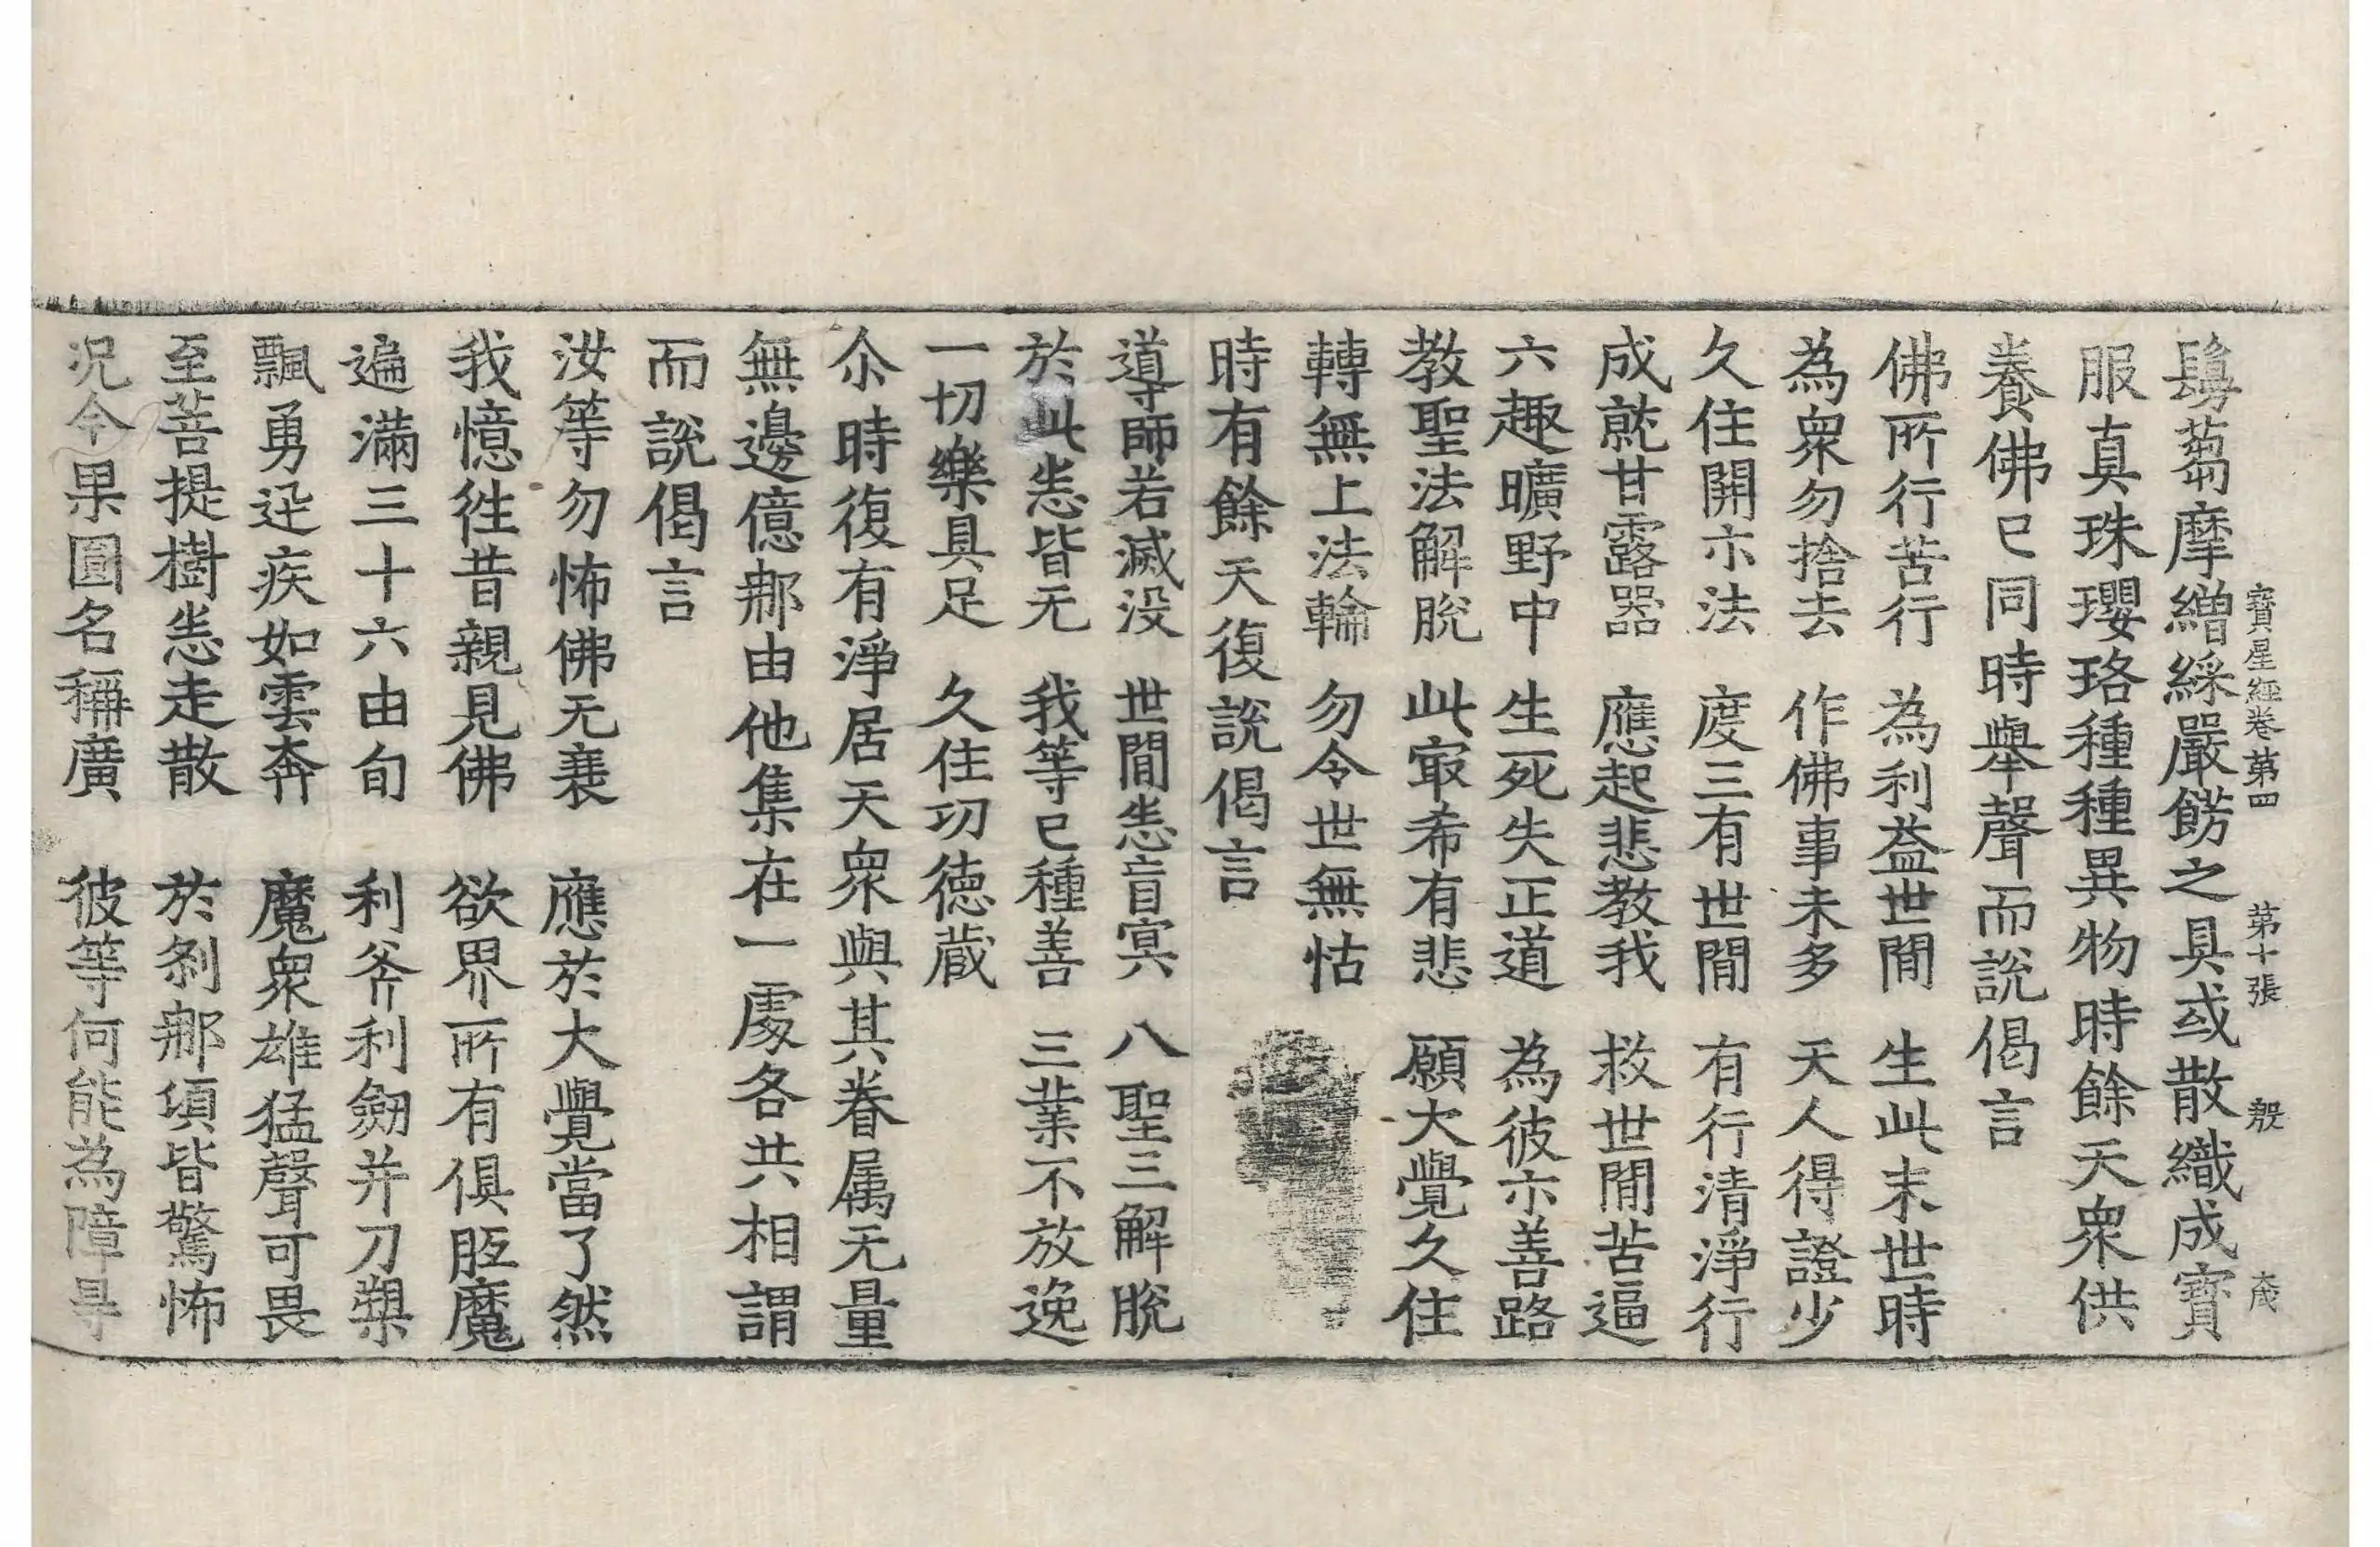 寶星經卷第四 第十張 殷
鬘蒭摩繒綵嚴餝之具或散織成寶
服真珠瓔珞種種異物時餘天衆供
養佛已同時舉聲而說偈言
佛所行苦行 為利益世間 生此末世時
為衆勿捨去 作佛事未多 天人得證少
久住開示法 度三有世間 有行清淨行
成就甘露器 應起悲教我 救世間苦逼
六趣曠野中 生死失正道 為彼示善路
教聖法解脫 此冣希有悲 願大覺久住
轉無上法輪 勿令世無怙
時有餘天復說偈言
導師若滅没 世間悉盲冥 八聖三解脫
於此悉皆无 我等已種善 三業不放逸
一切樂具足 久住功德蔵
尒時復有淨居天衆與其眷属无量
無邊億那由他集在一處各共相謂
而說偈言
汝等勿怖佛无衰 應於大覺當了然
我憶徃昔親見佛 欲界所有俱胝魔
遍滿三十六由旬 利斧利劒并刀槊
飄勇迅疾如雲奔 魔衆雄猛聲可畏
至菩提樹悉走散 於刹那頃皆驚怖
况令果圓名稱廣 彼等何能為障㝵